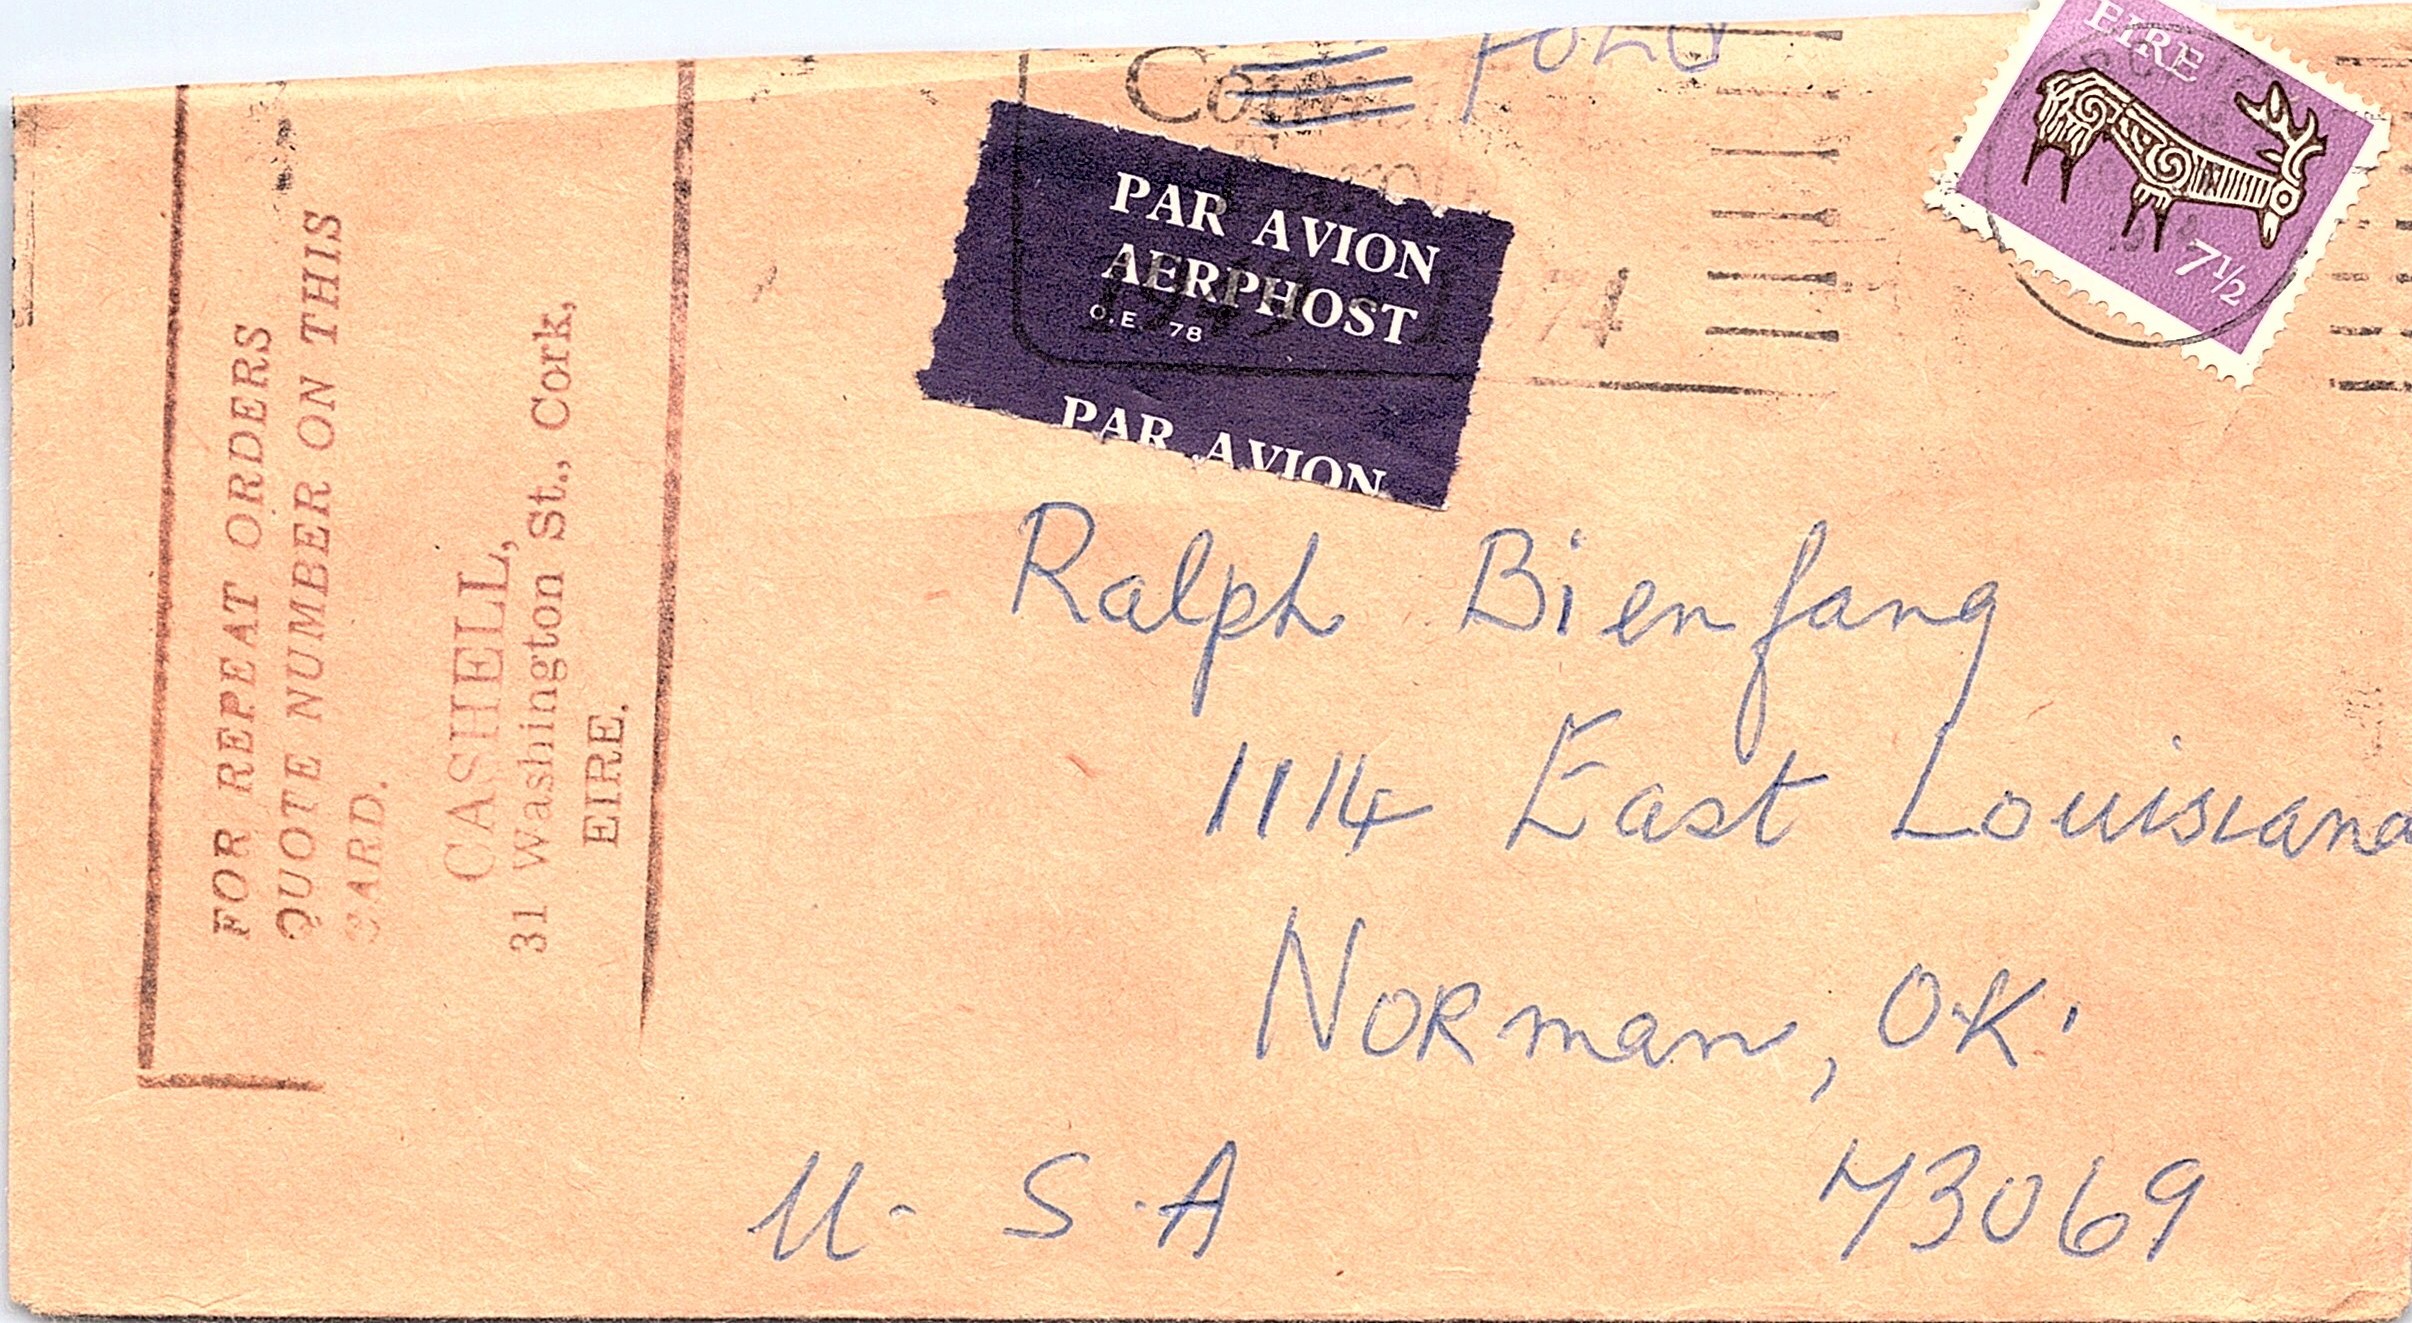 EIRE
7½
PAR AVION
AERPHOST
O.E. 78
PAR AVION
1949 1974
FOR REPEAT ORDERS
QUOTE NUMBER ON THIS
CARD.
CASHELL,
31 Washington St., Cork,
EIRE.
Ralph Bienfang
1114 East Louisiana
NORman, O.K.
U. S. A 73069